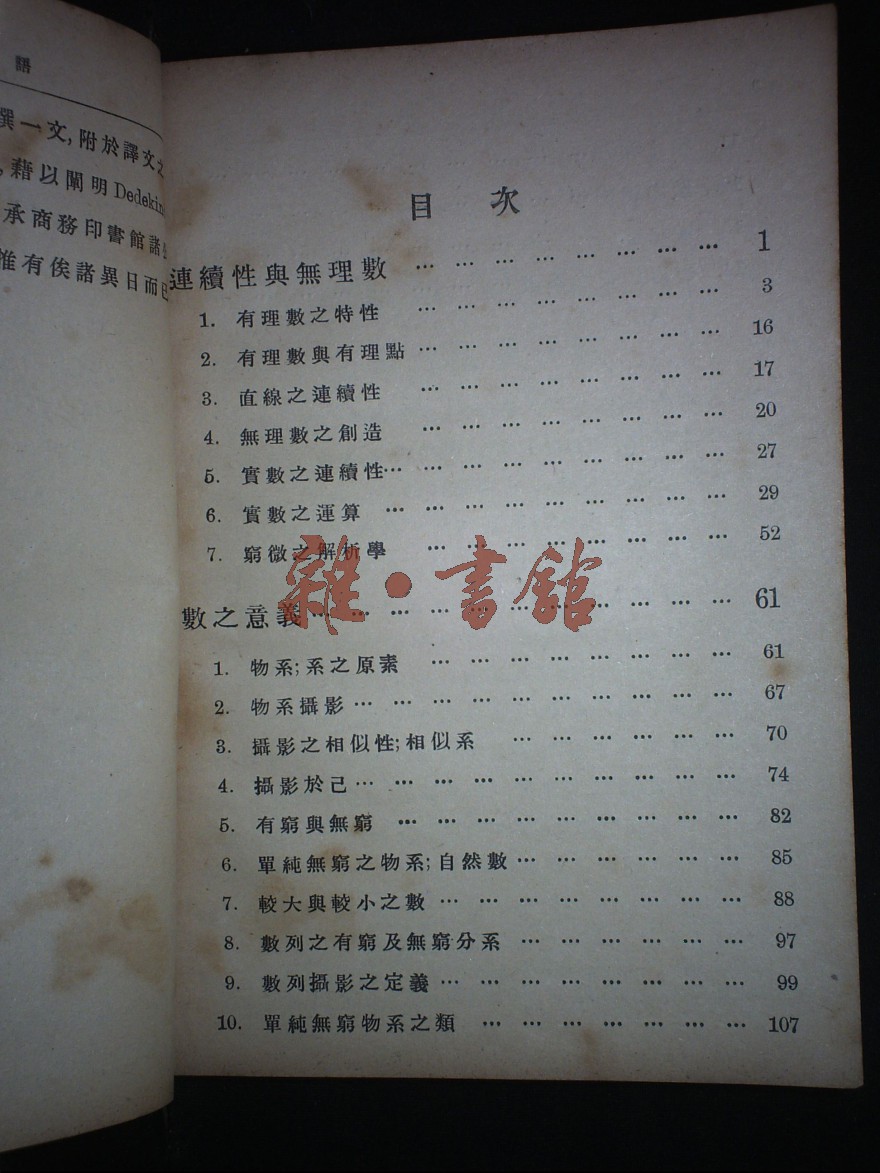 語
撰一文,附於譯文之
,藉以闡明Dedekin
承商務印書館諸
惟有俟諸異日而已
目 次
連續性與無理數 … … … … … … … … 1
1. 有理數之特性 … … … … … … … … 3
2. 有理數與有理點 … … … … … … … … 16
3. 直線之連續性 … … … … … … … … 17
4. 無理數之創造 … … … … … … … … 20
5. 實數之連續性 … … … … … … … … … 27
6. 實數之運算 … … … … … … … … … 29
7. 窮微之解析學 … … … … … … … … 52
數之意義 … … … … … … … … … … 61
1. 物系;系之原素 … … … … … … … … 61
2. 物系攝影 … … … … … … … … … … 67
3. 攝影之相似性;相似系 … … … … … … 70
4. 攝影於己 … … … … … … … … … … 74
5. 有窮與無窮 … … … … … … … … … 82
6. 單純無窮之物系;自然數 … … … … … … 85
7. 較大與較小之數 … … … … … … … … 88
8. 數列之有窮及無窮分系 … … … … … … 97
9. 數列攝影之定義 … … … … … … … … 99
10. 單純無窮物系之類 … … … … … … … 107
雜·書館